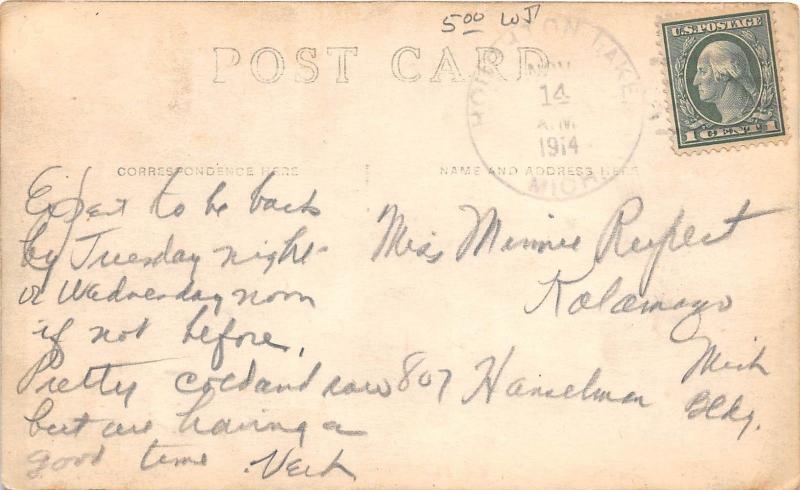 5 00 WJ
POST CARD
HOUGHTON LAKE
NOV
14
A.M.
1914
MICH.
U.S. POSTAGE
1 CENT 1
CORRESPONDENCE HERE
NAME AND ADDRESS HERE
Expect to be back
by Tuesday night
or Wednesday noon
if not before.
Pretty cold and raw
but are having a
good time.
Miss Minnie
Kalamazo
Mich
807 Hanselman Bldg.